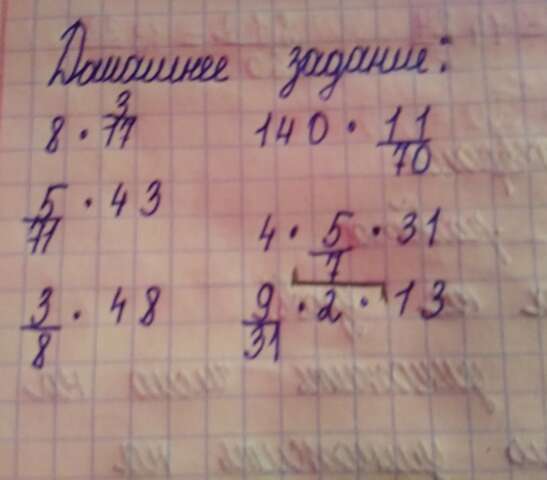 Домашнее задание:
8 · 3/77
140 · 11/70
5/71 · 43
4 · 5/7 · 31
3/8 · 48
9/31 · 2 · 13